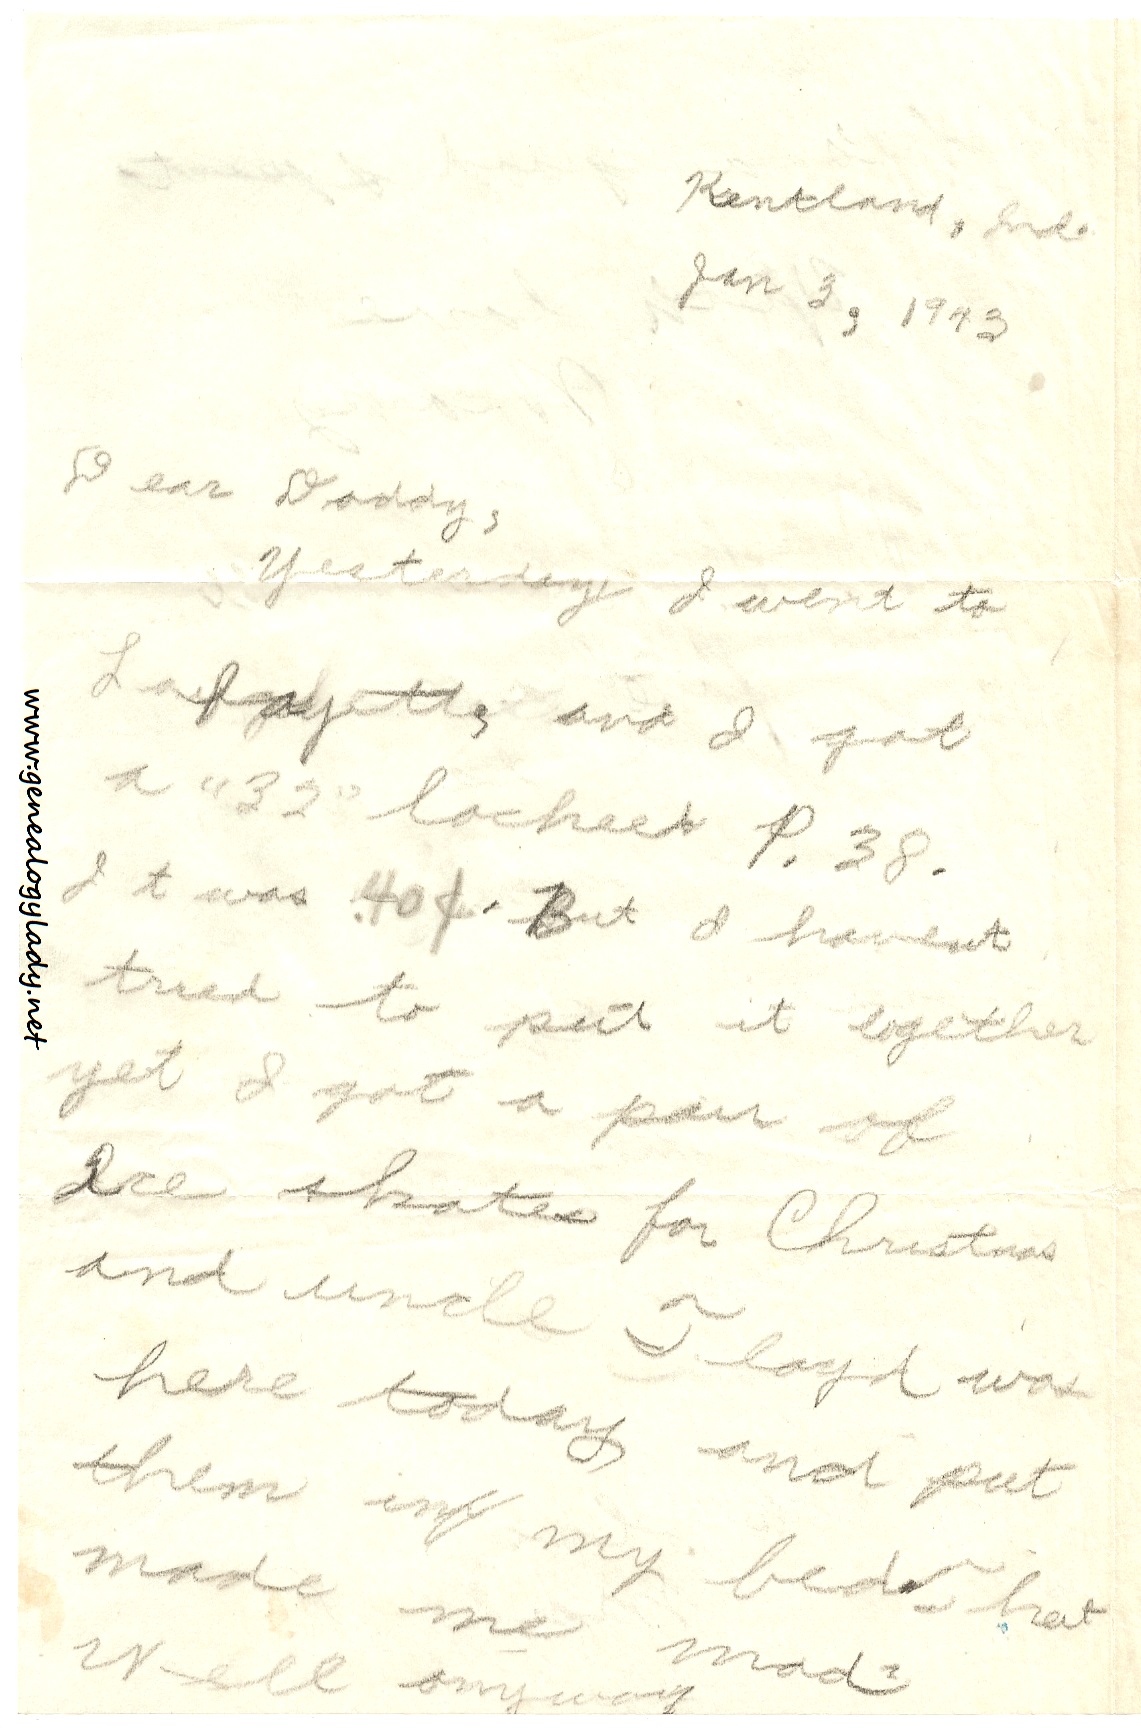 Kentland, Ind.
Jan 3, 1943
Dear Daddy,
Yesterday I went to
Lafayette, and I got
a "32" locheed P. 38.
It was .40¢. But I havent
tried to put it together
yet I got a pair of
Ice skates for Christmas
and uncle Floyd was
here today, and put
them in my bed. That
made me mad.
Well anyway
www.genealogylady.net